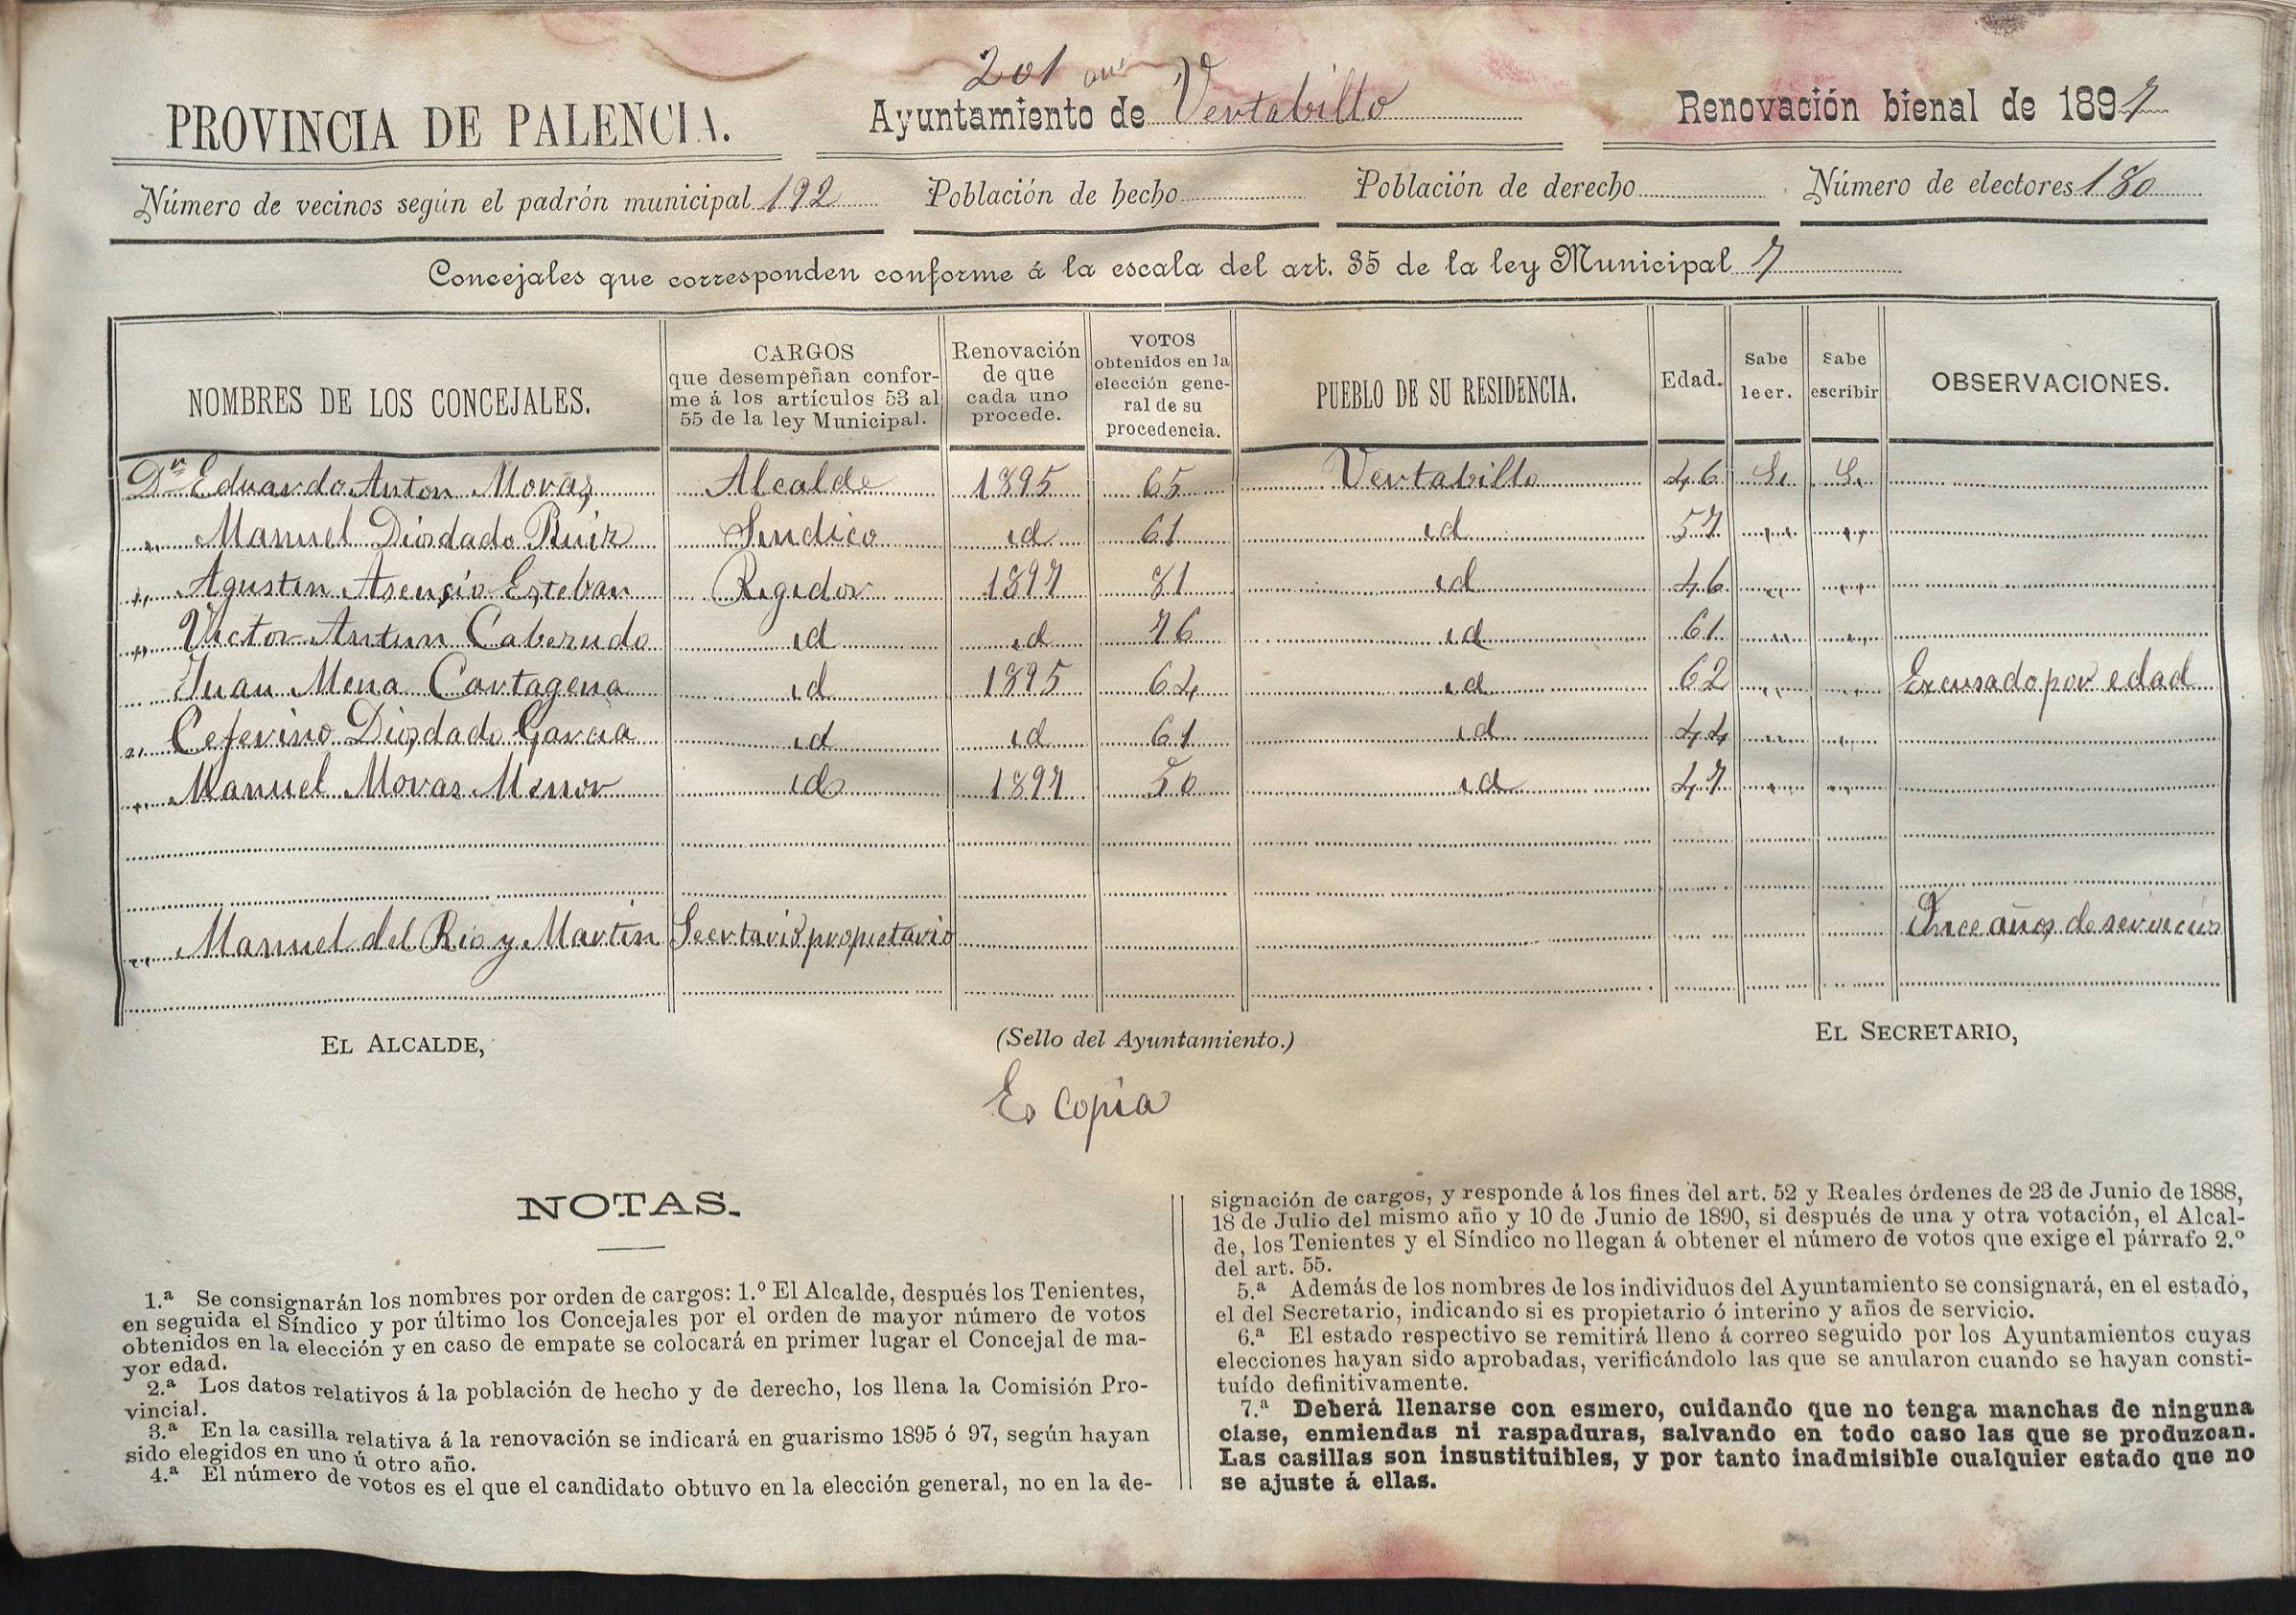 201
PROVINCIA DE PALENCIA. Ayuntamiento de Vertabillo Renovación bienal de 1897
Número de vecinos según el padrón municipal 192 Población de hecho Población de derecho Número de electores 180
Concejales que corresponden conforme á la escala del art. 35 de la ley Municipal 7
NOMBRES DE LOS CONCEJALES. CARGOS que desempeñan confor-me á los artículos 53 al 55 de la ley Municipal. Renovación de que cada uno procede. VOTOS obtenidos en la elección gene-ral de su procedencia. PUEBLO DE SU RESIDENCIA. Edad. Sabe leer. Sabe escribir OBSERVACIONES.
Dn Eduardo Anton Moras Alcalde 1895 65 Vertabillo 46 Si Si
" Manuel Diosdado Ruiz Sindico id 61 id 57 " "
" Agustin Asensio Esteban Regidor 1897 81 id 46 " "
" Victor Antun Caberudo id id 76 id 61 " "
Juan Mena Cartagena id 1895 64 id 62 " " Excusado por edad
" Ceferino Diosdado Garcia id id 61 id 44 " "
" Manuel Moras Menor id 1897 50 id 47 " "
" Manuel del Rio y Martin Secrtario propietario Once años de servicios
EL ALCALDE, (Sello del Ayuntamiento.) EL SECRETARIO,
Es copia
NOTAS.
1.ª Se consignarán los nombres por orden de cargos: 1.º El Alcalde, después los Tenientes,
en seguida el Síndico y por último los Concejales por el orden de mayor número de votos
obtenidos en la elección y en caso de empate se colocará en primer lugar el Concejal de ma-
yor edad.
2.ª Los datos relativos á la población de hecho y de derecho, los llena la Comisión Pro-
vincial.
3.ª En la casilla relativa á la renovación se indicará en guarismo 1895 ó 97, según hayan
sido elegidos en uno ú otro año.
4.ª El número de votos es el que el candidato obtuvo en la elección general, no en la de-
signación de cargos, y responde á los fines del art. 52 y Reales órdenes de 23 de Junio de 1888,
18 de Julio del mismo año y 10 de Junio de 1890, si después de una y otra votación, el Alcal-
de, los Tenientes y el Síndico no llegan á obtener el número de votos que exige el párrafo 2.º
del art. 55.
5.ª Además de los nombres de los individuos del Ayuntamiento se consignará, en el estado,
el del Secretario, indicando si es propietario ó interino y años de servicio.
6.ª El estado respectivo se remitirá lleno á correo seguido por los Ayuntamientos cuyas
elecciones hayan sido aprobadas, verificándolo las que se anularon cuando se hayan consti-
tuído definitivamente.
7.ª Deberá llenarse con esmero, cuidando que no tenga manchas de ninguna
clase, enmiendas ni raspaduras, salvando en todo caso las que se produzcan.
Las casillas son insustituibles, y por tanto inadmisible cualquier estado que no
se ajuste á ellas.